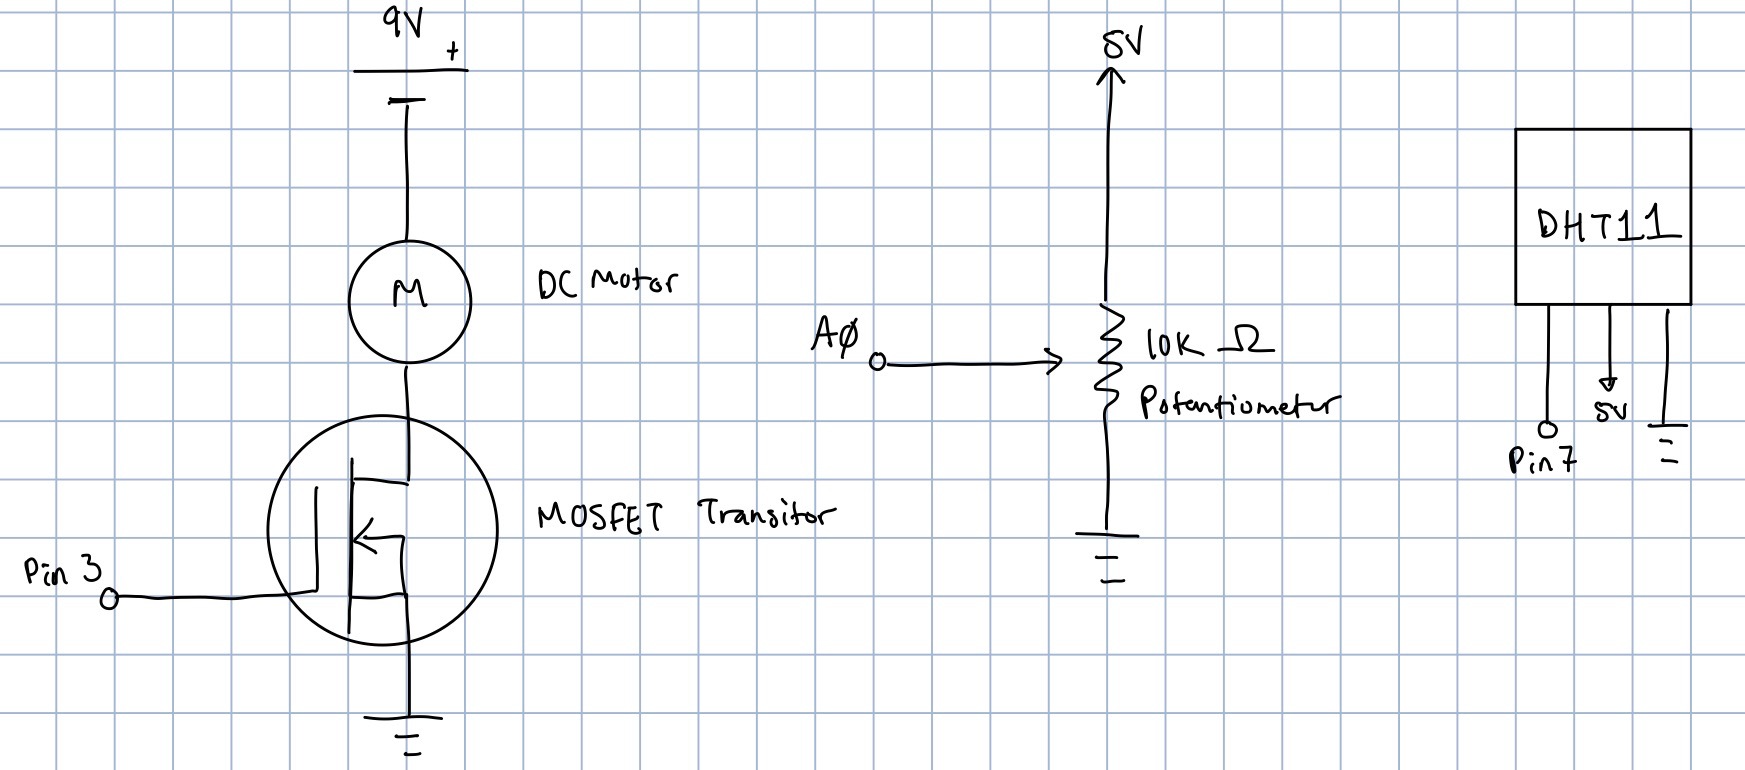 9V
+
M
DC Motor
MOSFET Transitor
Pin 3
5V
AØ
10K Ω
Potentiometer
DHT11
5V
Pin 7